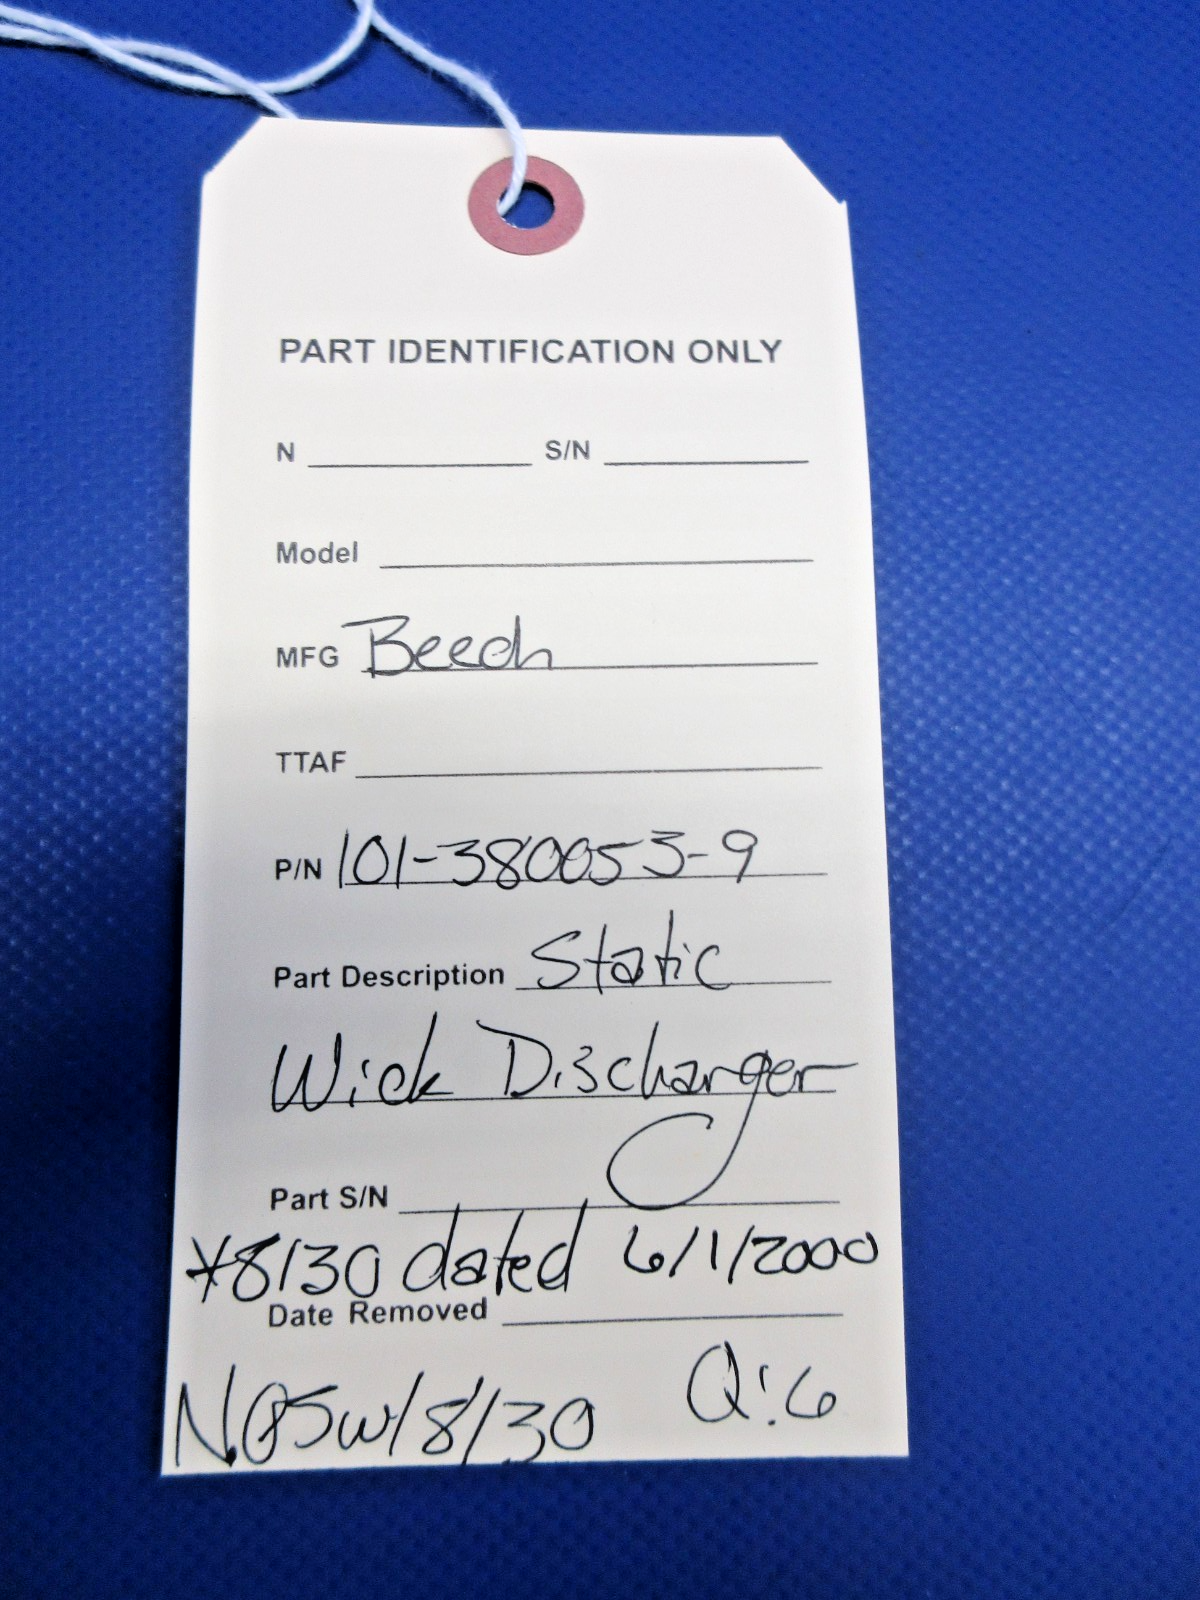 PART IDENTIFICATION ONLY
N S/N
Model
MFG Beech
TTAF
P/N 101-380053-9
Part Description Static
Wick Discharger
Part S/N
*8130 dated 6/1/2000
Date Removed
N.O5 w/8130 Q:6